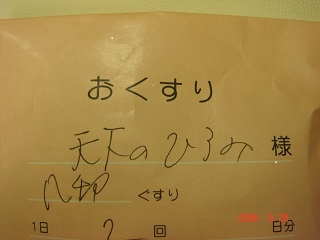 おくすり
天下のひろみ 様
ぐすり
1日 2 回 日分